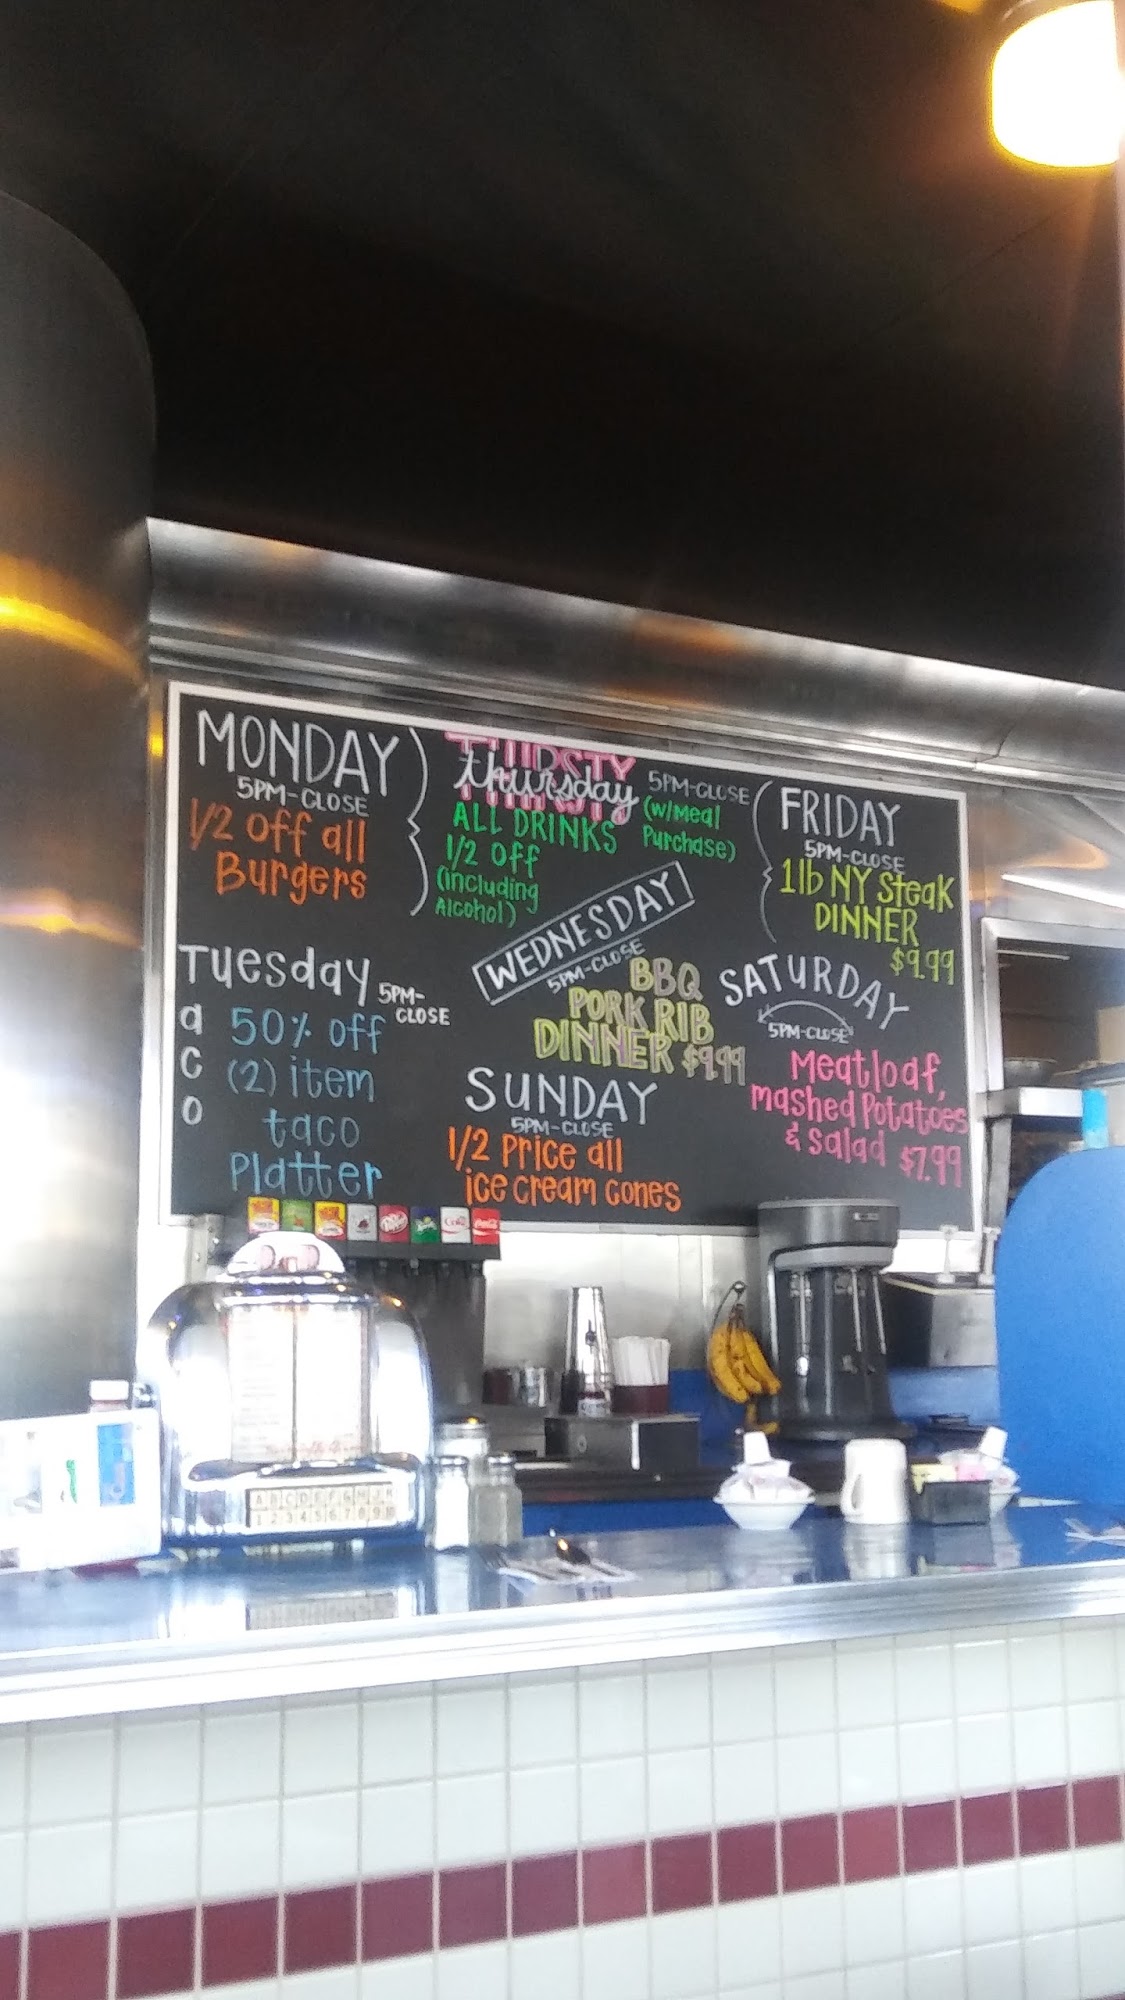 MONDAY
5PM-CLOSE
1/2 off all
Burgers
THIRSTY
thursday
5PM-CLOSE
(w/Meal
Purchase)
ALL DRINKS
1/2 off
(including
Alcohol)
FRIDAY
5PM-CLOSE
1lb NY Steak
DINNER
$9.99
Tuesday
5PM-
CLOSE
a
C
O
50% off
(2) item
taco
Platter
WEDNESDAY
5PM-CLOSE
BBQ
PORK RIB
DINNER $9.99
SATURDAY
5PM-CLOSE
Meatloaf,
mashed Potatoes
& salad $7.99
SUNDAY
5PM-CLOSE
1/2 Price all
ice cream cones
Coke
A B C D E F G H J K
1 2 3 4 5 6 7 8 9 0